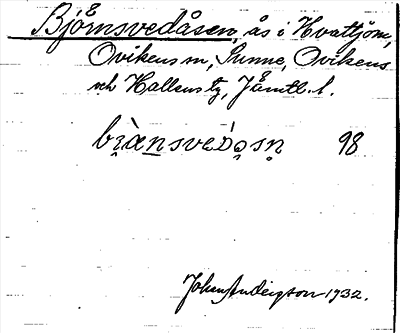 Björnsvedåsen, ås i Hvattjom,
Ovikens m, Sunne, Ovikens
och Hallens tg, Jämtl. l.
bi̯ὰn̠svedɔ̀sn̥ 98
Johan Anderson 1932.